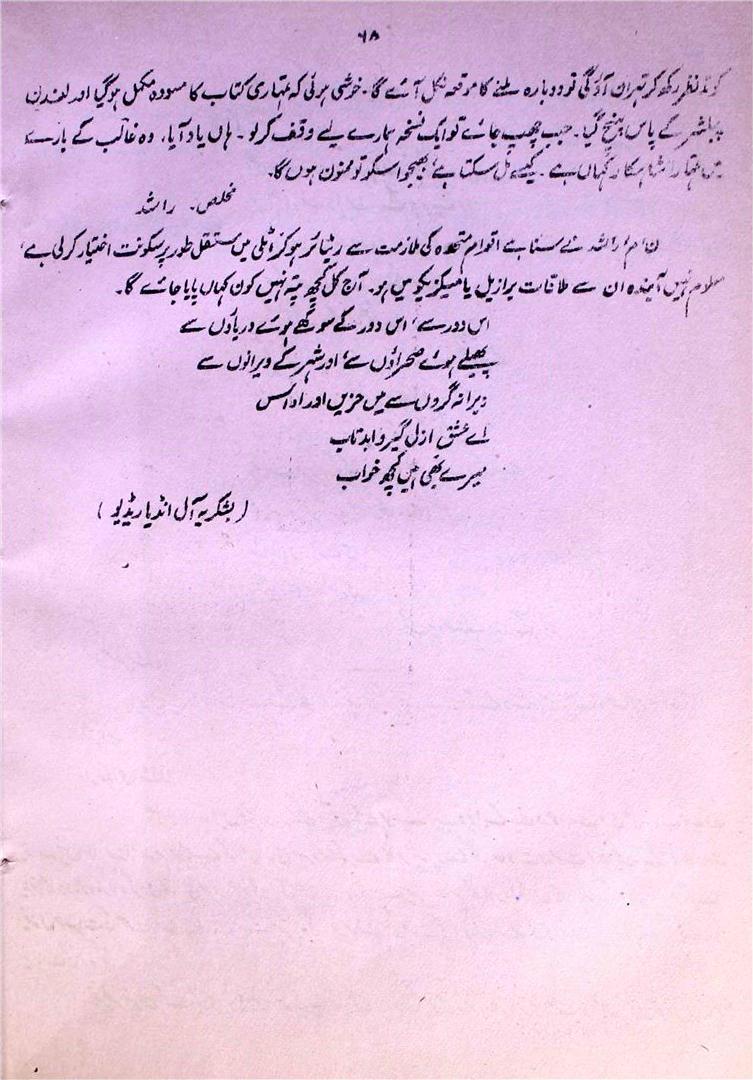 ۶۸
کو مدنظر رکھ کر تہران آؤ گی تو دوبارہ ملنے کا موقعہ نکل آئے گا۔ خوشی ہوئی کہ تمہاری کتاب کا مسودہ مکمل ہو گیا اور لندن
پبلشر کے پاس پہنچ گیا۔ جب چھپ جائے تو ایک نسخہ ہمارے لیے وقف کر لو ۔ ہاں یاد آیا، وہ غالب کے بارے
میں تمہارا شاہکار کہاں ہے ۔ کیسے مل سکتا ہے، بھجوا سکو تو ممنون ہوں گا۔
مخلص۔ راشد
ن م راشد نے سنا ہے اقوام متحدہ کی ملازمت سے ریٹائر ہو کر اٹلی میں مستقل طور پر سکونت اختیار کر لی ہے،
معلوم نہیں آیندہ ان سے ملاقات برازیل یا میکزیکو میں ہو۔ آج کل کچھ پتہ نہیں کون کہاں پایا جائے گا۔
اس دور سے، اس دور کے سوکھے ہوئے دریاؤں سے
پھیلے ہوئے صحراؤں سے، اور شہر کے ویرانوں سے
ویرانہ گروں سے میں حزیں اور اداس
اے عشق ازل گیر و ابد تاب
میرے بھی ہیں کچھ خواب
(بشکریہ آل انڈیا ریڈیو)